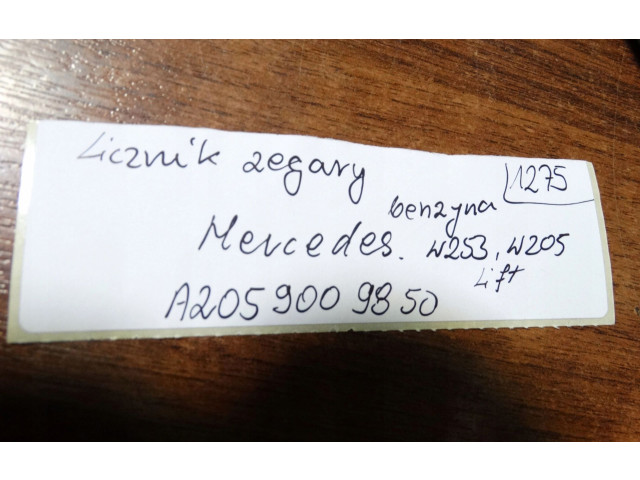 Licznik zegary 1275
benzyna
Mercedes. W253, W205
Lift
A205 900 98 50